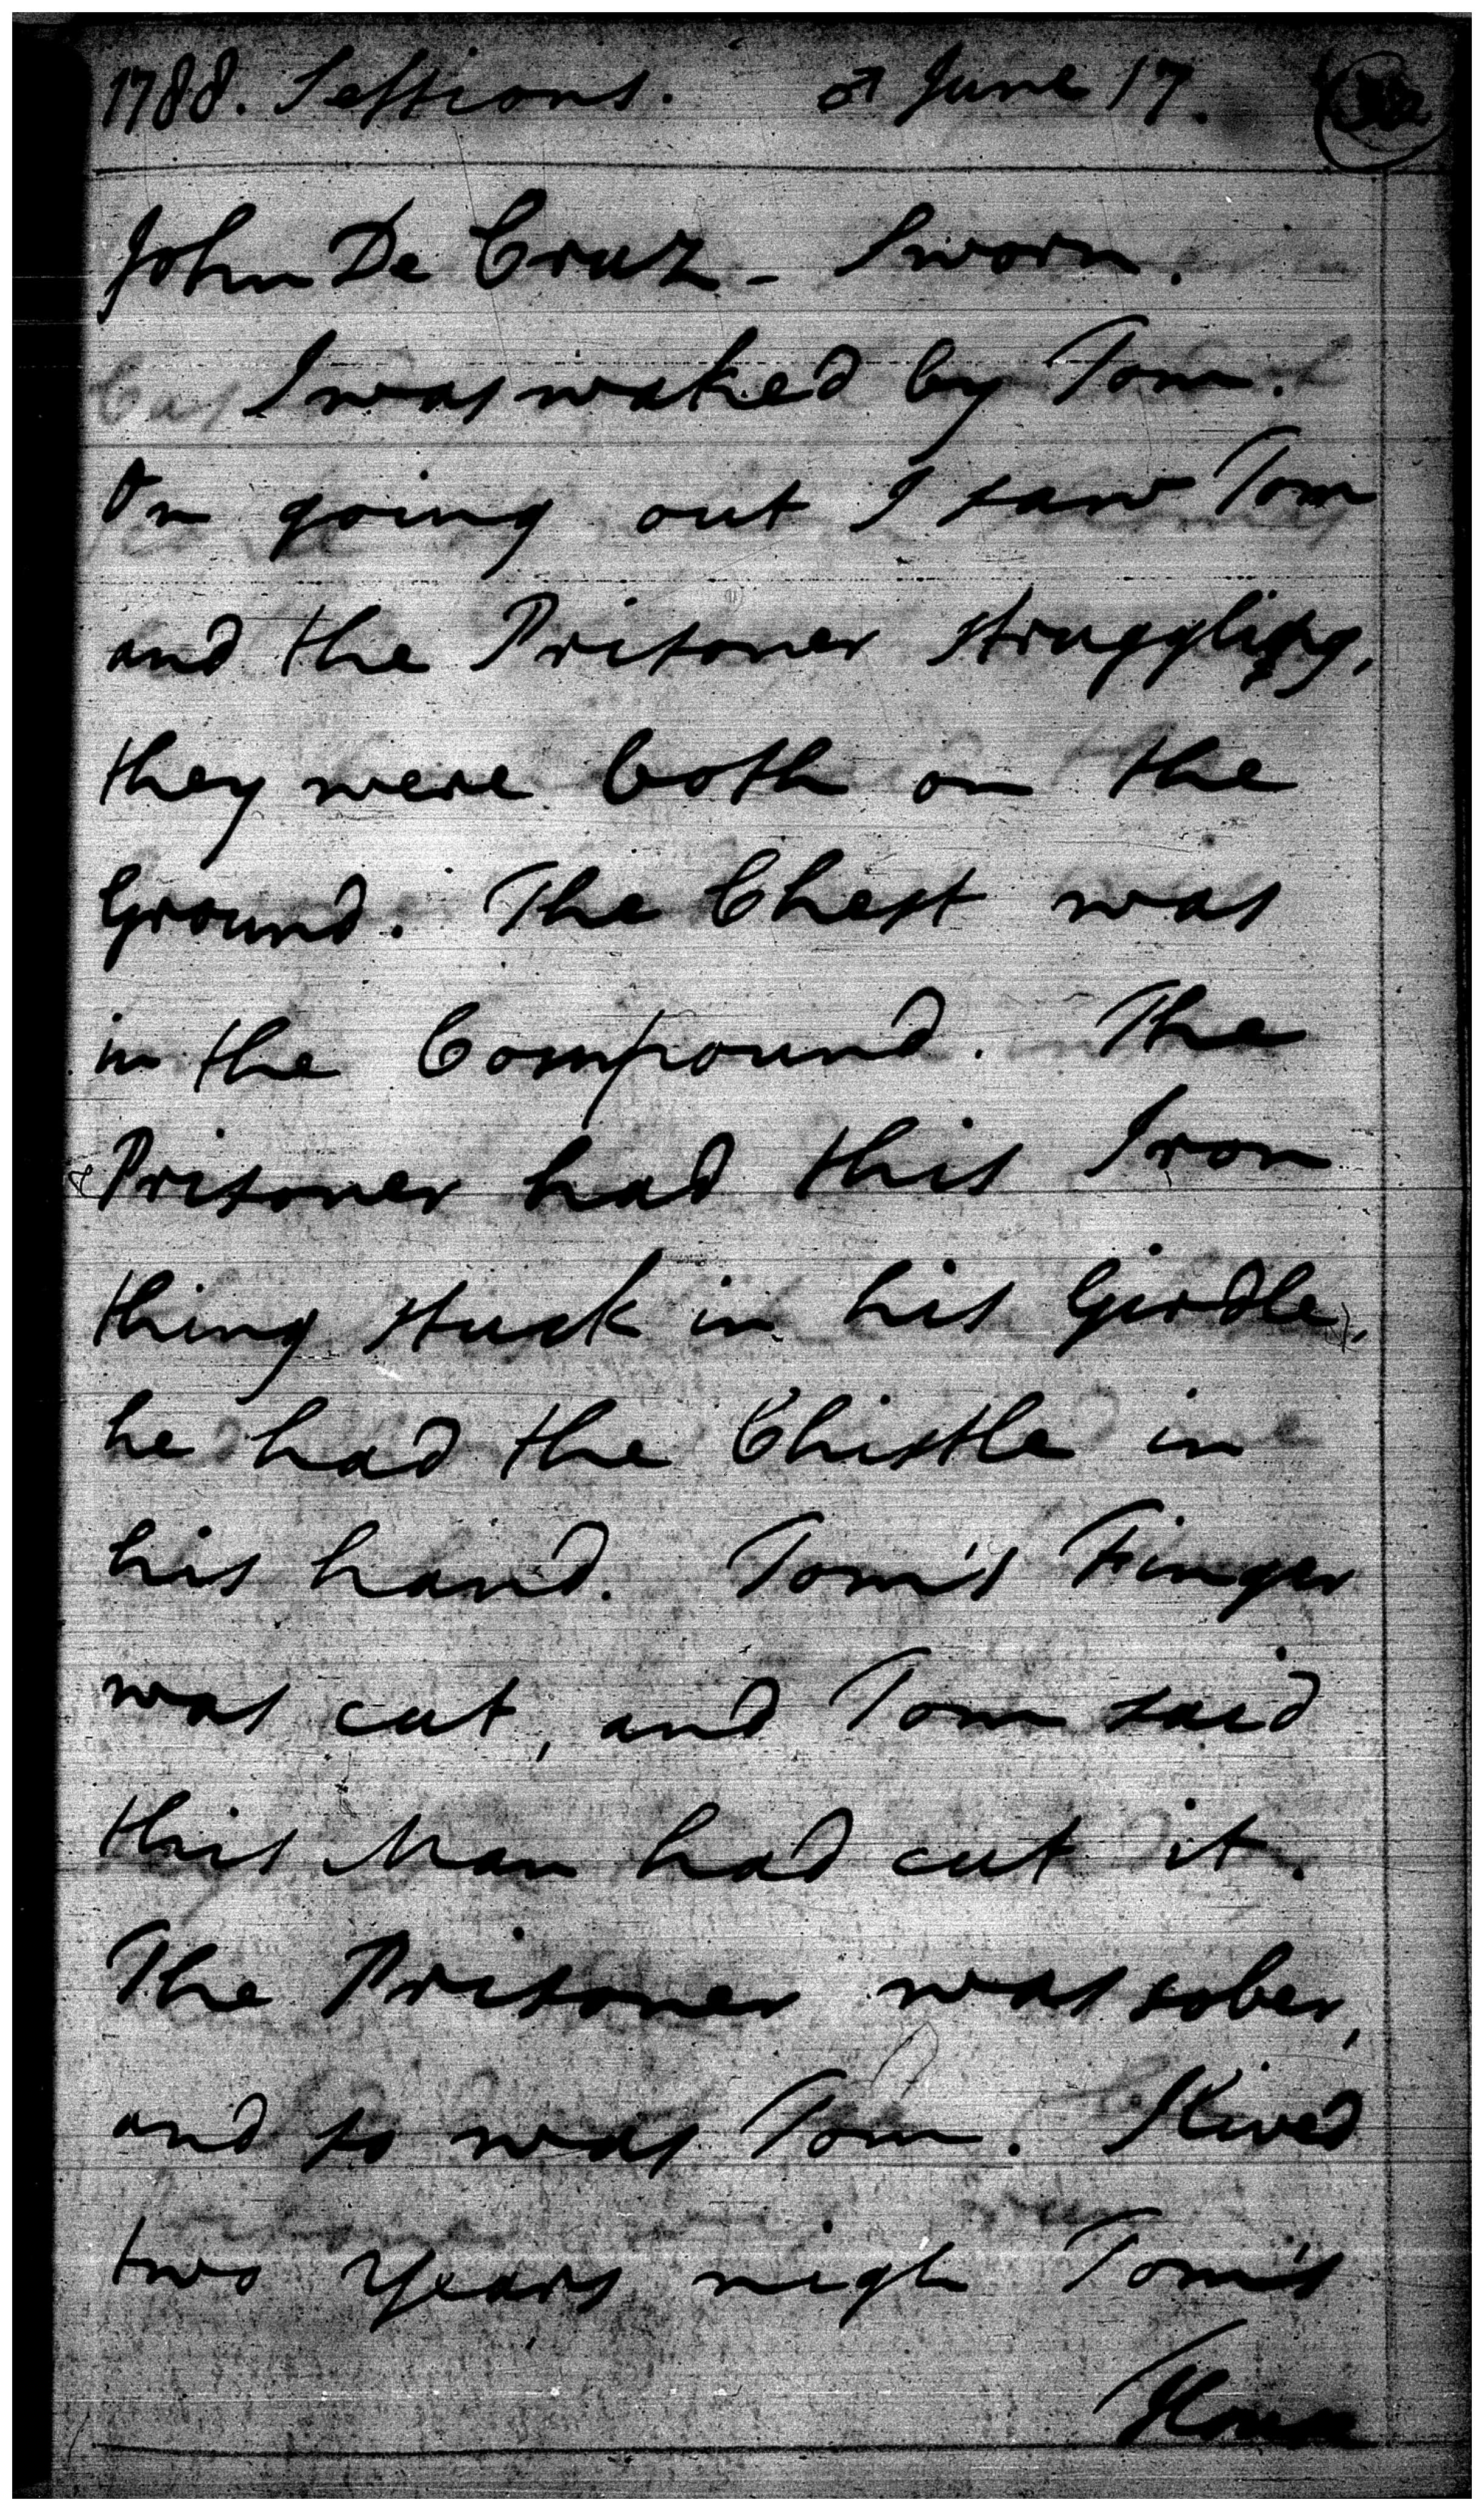 1788. Sessions. ♂ June 17.
John De Cruz - Sworn.
I was waked by Tom.
On going out I saw Tom
and the Prisoner struggling,
they were both on the
Ground. The Chest was
in the Compound. The
Prisoner had this Iron
thing stuck in his Girdle,
he had the Chistle in
his hand. Tom's Finger
was cut, and Tom said
this Man had cut it.
The Prisoner was sober,
and so was Tom. I lived
two Years nigh Tom's
House